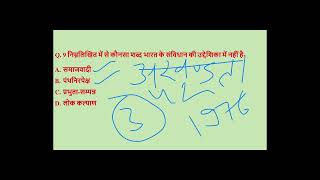 Q. 9 निम्नलिखित में से कौनसा शब्द भारत के संविधान की उद्देशिका में नहीं है-
A. समाजवादी
B. पंथनिरपेक्ष
C. प्रभुता-सम्पन्न
D. लोक कल्याण
अखण्डता
42
3
1976